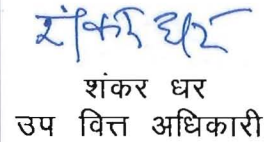 शंकर धर
शंकर धर
उप वित्त अधिकारी